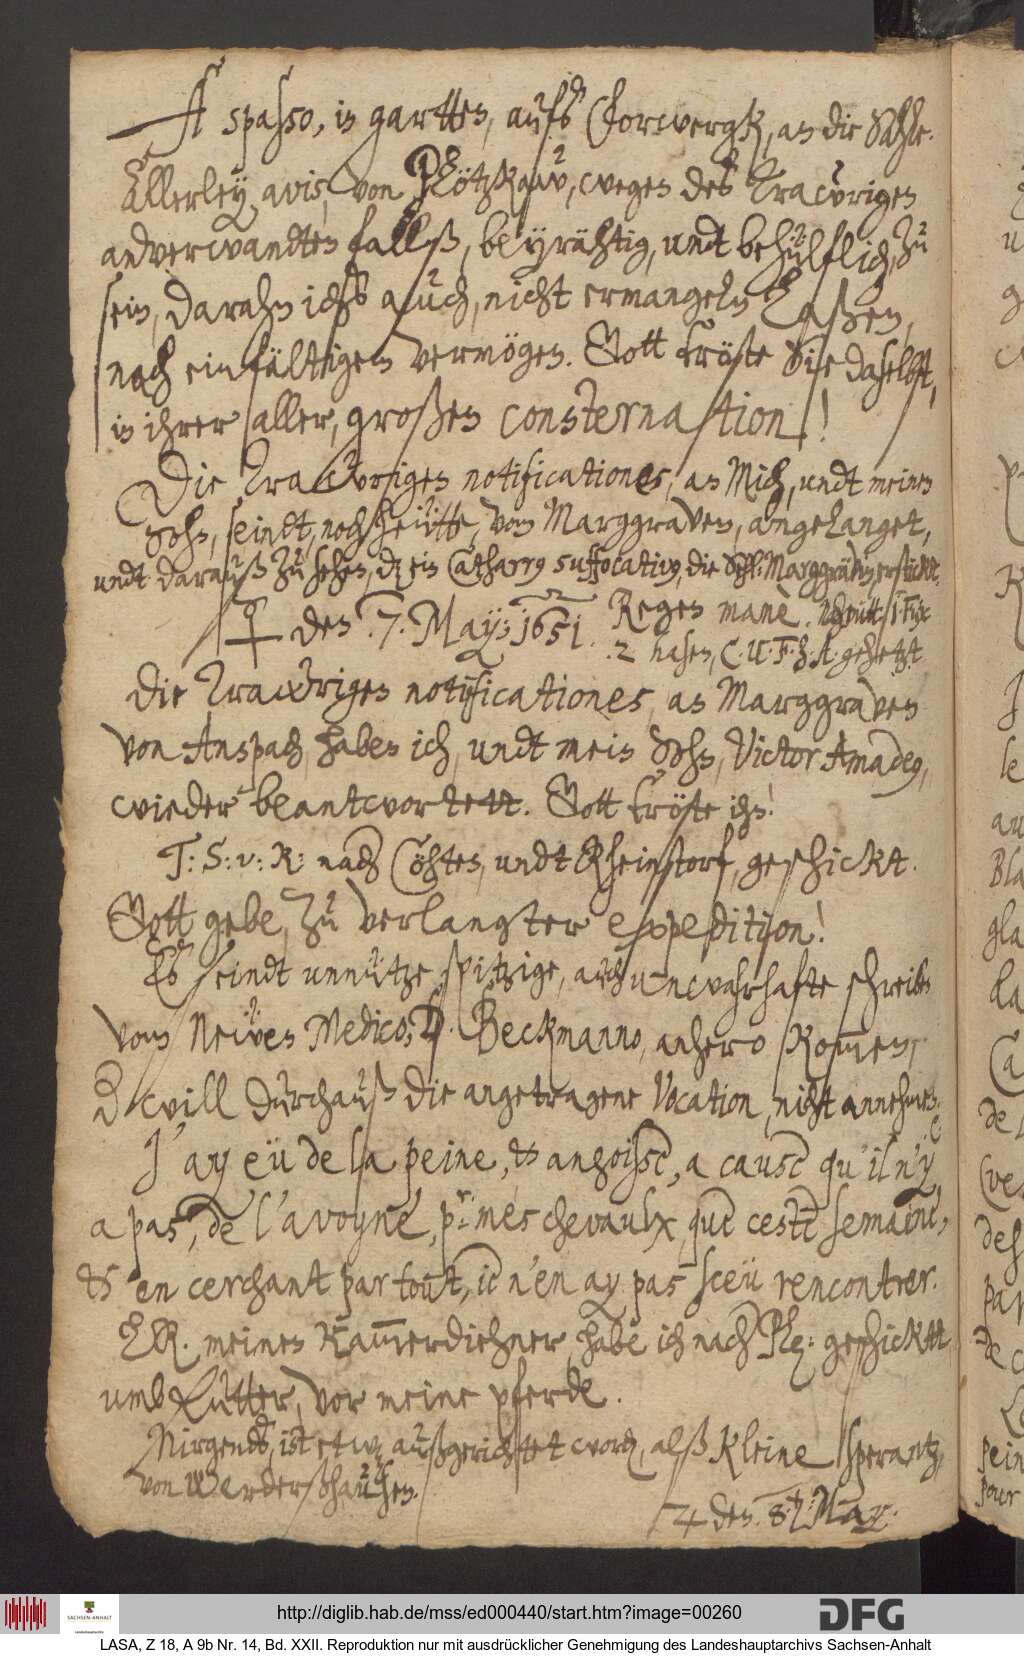 A spasso, in gartten, aufs Vorwergk, an die Sahle.
Allerley avis, von Plötzkaw, wegen des Trawrigen
anverwandten falls, beyrähtig, undt behülflich, zu
sein, darahn ichs auch, nicht ermangeln laßen,
nach einfältigem vermögen. Gott tröste Sie daselbst,
in ihrer aller, großen consternation!
Die Trawrigen notificationes, an Mich, undt meinen
Sohn, seindt, noch heütte, vom Marggraven, angelanget,
undt darauß zu sehen, daß ein Catharrus suffocativus, die Sehl: Marggrävin erstückt.
☿ den .7. May: 1651. Regen manè. Nachmitt: 1 Fix
2 hasen, C. U. F. h. A. gehetzt
Die Trawrigen notificationes, an Marggraven
von Anspach, haben ich, undt mein Sohn, Victor Amadeus,
wieder beantwortett. Gott tröste ihn!
T: S: v: R: nach Cöhten, undt Rheinstorf, geschickt.
Gott gebe, zu verlangter expedition!
Es seindt unnütze, spitzige, auch unwahrhafte schreiben
vom Neüen Medico, D. Beckmanno, anhero kommen,
Er will durchauß die angetragene Vocation, nicht annehmen.
J'ay eü de la peine, & angoisse, a cause qu'il n'y
a pas, de l'avoyne, pour mes chevaulx, que ceste semaine,
& en cerchant par tout, ie n'en ay pas sceü rencontrer.
meinen Kammerdiehner, habe ich nach Plz: geschicktt
umb Futter, vor meine pferde.
Nirgends, ist etwas außgerichtet worden, alß kleine sperantz,
von Werderßhausen.
♃ den .8.ten: May.
http://diglib.hab.de/mss/ed000440/start.htm?image=00260
DFG
SACHSEN-ANHALT
LASA, Z 18, A 9b Nr. 14, Bd. XXII. Reproduktion nur mit ausdrücklicher Genehmigung des Landeshauptarchivs Sachsen-Anhalt